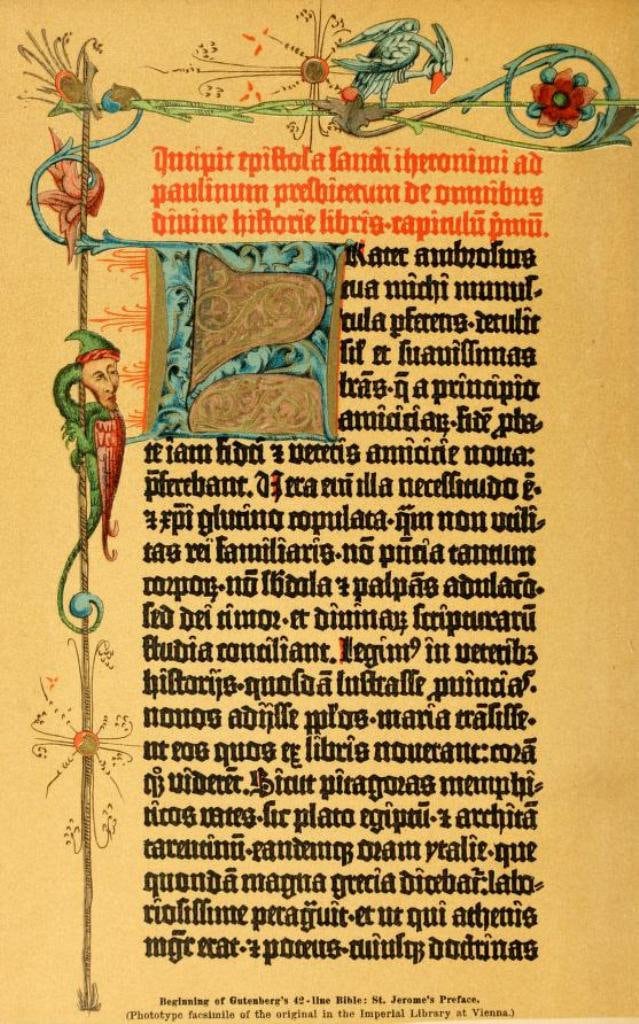 Incipit epistola sancti iheronimi ad
paulinum presbiterum de omnibus
divine historie libris·capitulū pͥmū.
Frater ambrosius
tua michi munus-
cula pferens·detulit
sil' et suavissimas
lrās·q̄ a principio
amiciciaꝝ·fidē pba-
te iam fidei ⁊ veteris amicicie nova:
pferebant. Vera eni illa necessitudo ē·
⁊ xp̄i glutino copulata·qm̄ non utili-
tas rei familiaris·nō pn̄cia tantum
corpoꝝ·nō sbdola ⁊ palpās adulacō·
sed dei timor·et divinaꝝ scripturarū
studia conciliant. Legimꝰ in veteribꝫ
historijs·quosdā lustrasse ꝓvincias·
novos adijsse pplos·maria trāsisse·
ut eos quos ex libris noverant: corā
qꝫ viderēt. Sicut pitagoras memphi-
ticos vates·sic plato egiptū·⁊ architā
tarentinū·eandemqꝫ oram ytalie·que
quondā magna grecia dicebat̄: labo-
riosissime peragͣvit·et ut qui athenis
mgr̄ erat·⁊ potens·cuiusqꝫ doctrinas
Beginning of Gutenberg's 42-line Bible: St. Jerome's Preface.
(Phototype facsimile of the original in the Imperial Library at Vienna.)